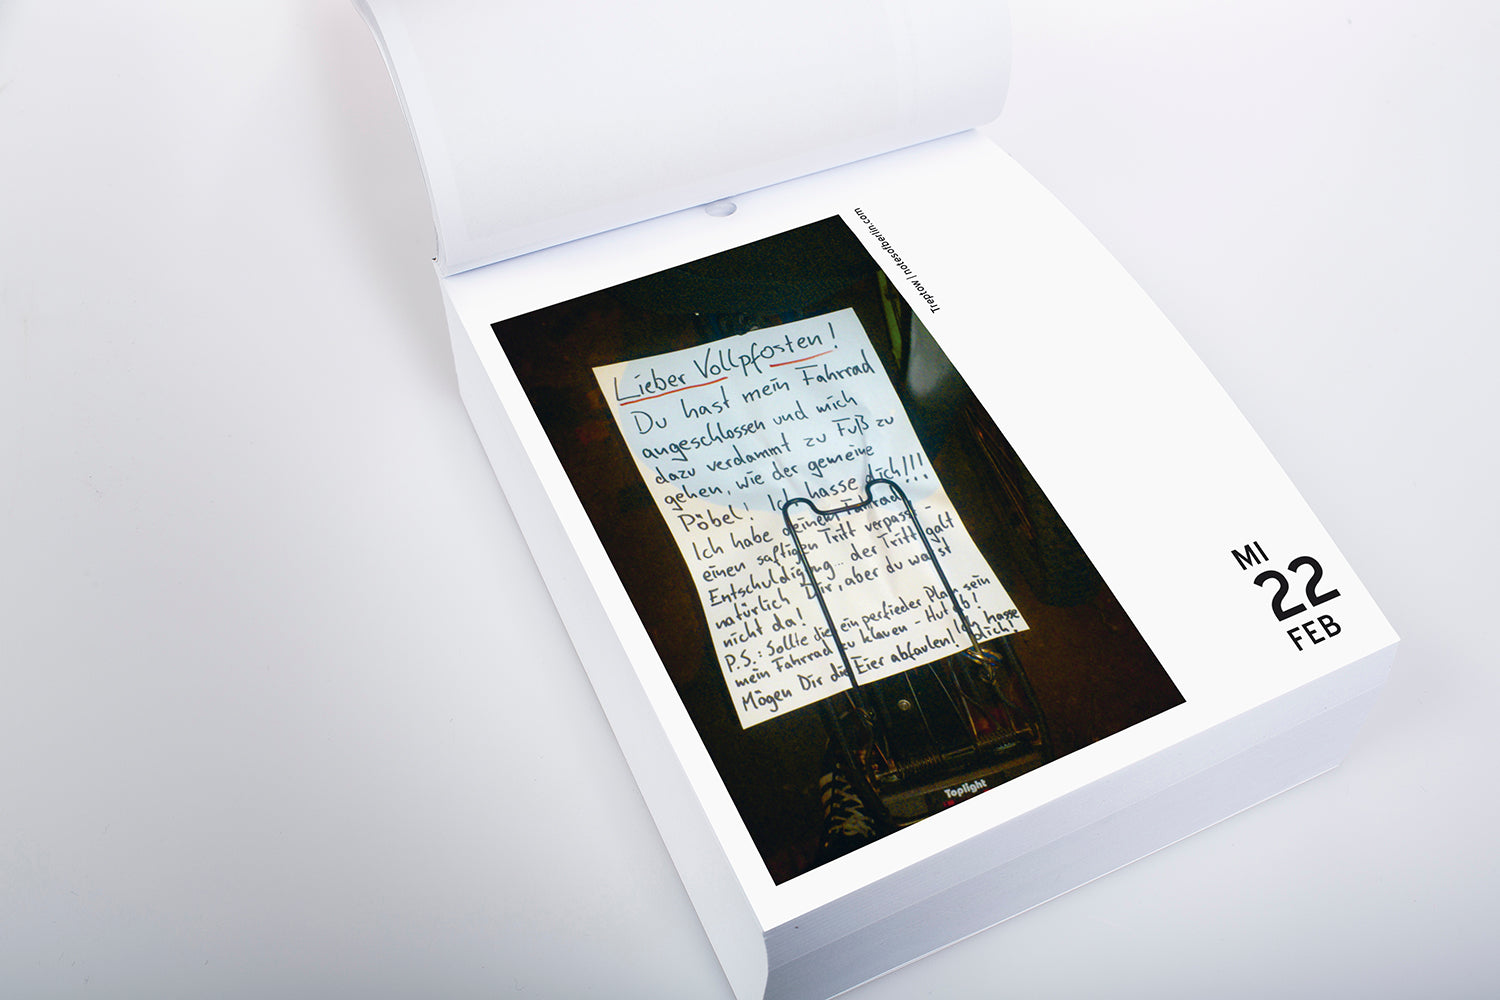 Treptow | notesofberlin.com
Lieber Vollpfosten!
Du hast mein Fahrrad
angeschlossen und mich
dazu verdammt zu Fuß zu
gehen, wie der gemeine
Pöbel! Ich hasse dich!!!
Ich habe deinem Fahrrad
einen saftigen Tritt verpasst -
Entschuldigung.. der Tritt galt
natürlich Dir, aber du warst
nicht da!
P.S.: Sollte dies ein perfieder Plan sein
mein Fahrrad zu klauen - Hut ab!
Mögen Dir die Eier abfaulen! Ich hasse
dich!
Toplight
MI
22
FEB